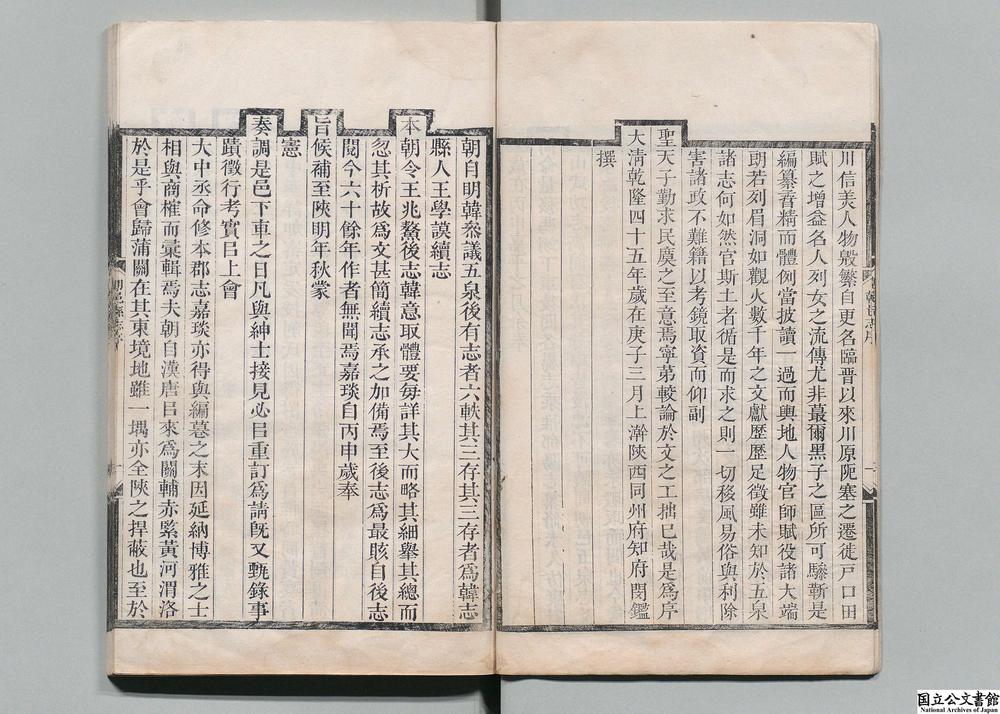 川信美人物殷繁自更名臨晋以來川原阨塞之遷徙戸口田
賦之增益名人列女之流傳尤非蕞爾黑子之區所可驂靳是
編纂旣精而體例當披讀一過而輿地人物官師賦役諸大端
朗若列眉洞如觀火數千年之文獻歷歷足徵雖未知於五泉
諸志何如然官斯土者循是而求之則一切移風易俗與利除
害諸政不難籍以考鏡取資而仰副
聖天子勤求民瘼之至意焉寧第較論於文之工拙已哉是爲序
大淸乾隆四十五年歲在庚子三月上澣陝西同州府知府閔鑑
撰
朝自明韓叅議五泉後有志者六軼其三存其三存者爲韓志
縣人王學謨續志
本朝令王兆鰲後志韓意取體要每詳其大而略其細舉其總而
忽其析故爲文甚簡續志承之加備焉至後志爲最晐自後志
閱今六十餘年作者無聞焉嘉琰自丙申歲奉
旨候補至陝明年秋蒙
憲
奏調是邑下車之日凡與紳士接見必㠯重訂爲請旣又甄錄事
蹟徵行考實㠯上會
大中丞命修本郡志嘉琰亦得與編摹之末因延納博雅之士
相與商榷而彙輯焉夫朝自漢唐㠯來爲關輔赤緊黃河渭洛
於是乎會歸蒲關在其東境地雖一堣亦全陝之捍蔽也至於
朝邑縣志序
國立公文書館
National Archives of Japan